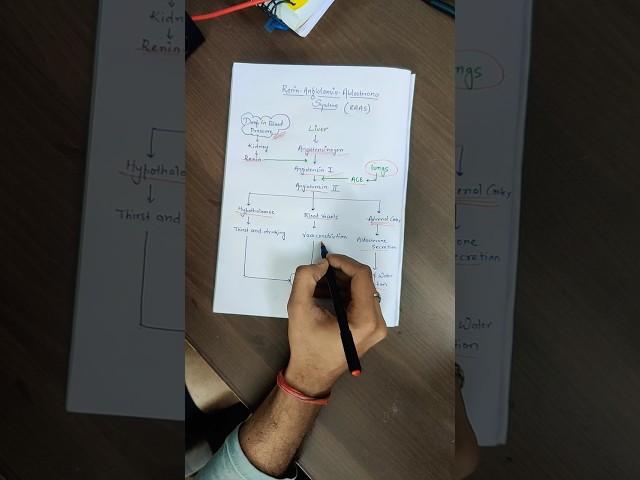 Renin-Angiotensin-Aldostrone
System (RAAS)
Drop in Blood
Pressure
Liver
Kidney
Angiotensinogen
Renin
Angiotensin I
lungs
ACE
Angiotensin II
Hypothalamus
Blood Vessels
Adrenal Cortex
Thirst and drinking
Vasoconstriction
Aldosterone
Secretion
Water
Kidney
Renin
Thirst and
ngs
Secretion
Water
tion